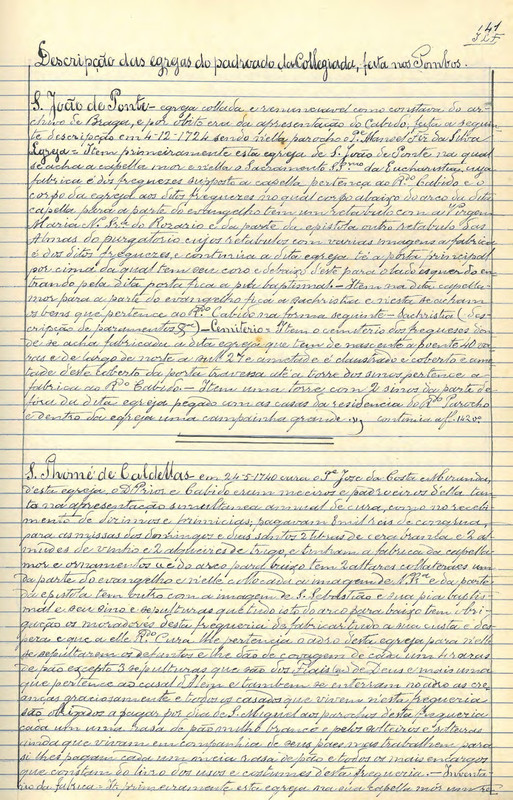 141
Descripção das egrejas do padroado da Collegiada, feita nos Tombos.
S. João de Ponte - egreja collada e renunciavel como constava do ar-
chivo de Braga, e por obito era da apresentação do Cabido, feita a seguin-
te descripção em 4-12-1724 sendo nella parocho o Pe. Manoel Fiz da Silva
Egreja = Item primeiramente esta egreja de S. João de Ponte na qual
se acha a capella mor e nella o Sacramento SSmo da Eucharistia, cuja
fabrica é dos freguezes supposto a capella pertença ao Rdo Cabido e o
corpo da egreja aos ditos freguezes no qual corpo abaixo do arco da dita
capella para a parte do evangelho tem um retabulo com a Virgem
Maria N. Sra do Rozario e da parte da epistola outro retabulo das
Almas do purgatorio cujos retabulos com varias imagens a fabrica
é dos ditos freguezes, e continua a dita egreja té a porta principal
por cima da qual tem seu coro e debaixo deste para o lado esquerdo en-
trando pela dita porta fica a pia baptismal - Item na dita capella-
mor para a parte do evangelho fica a sachristia e nesta se acham
os bens que pertence ao Rdo Cabido na forma seguinte - Sachristia (des-
cripção de paramentos &c) - Cemiterio = Item o cemiterio dos freguezes don-
de se acha fabricada a dita egreja que tem de nascente a poente 40 va-
ras e de largo de norte a sul 27 e ametade é claustrado e coberto e am-
tade deste coberto da porta travessa até a torre dos sinos pertence a
fabrica ao Rdo Cabido - Item uma torre com 2 sinos da parte de
fóra da dita egreja pegado com as casas da residencia do Rdo Parocho
e dentro da egreja uma campainha grande. continúa a fl. 142
S. Thomé de Caldellas em 24-5-1740 cura o Pe José da Costa
desta egreja, o D. Prior e Cabido eram meeiros e padroeiros della tan-
to na apresentação simultanea annual de cura, como no recebi-
mento de dizimos e primicias, pagavam 8 mil reis de congrua,
para as missas dos domingos e dias santos 2 libras de cera branca e 2 al-
mudes de vinho e 2 alqueires de trigo, e tinham a fabrica da capella-
mor e ornamentos e do arco para baixo tem 2 altares collateraes um
da parte do evangelho e nelle collocada a imagem de N. Sra e da parte
da epistola tem outro com a imagem de S. Sebastião e sua pia baptis-
mal e seu sino e sepulturas que tudo isto do arco para baixo tem obri-
gação os moradores desta freguezia de fabricar tudo a sua custa e des-
peza e que a elle Rdo Cura lhe pertencia o adro desta egreja para nelle
se sepultarem os defuntos e lhe dão de covagem de cada um 4 rasas
de pão excepto 3 sepulturas que são dos Fiais de Deus e mais uma
que pertence ao casal d'Alem e tambem se enterram no adro as cre-
anças graciosamente e todos os casados que vivem nesta freguezia
são obrigados a pagar por dia de S. Miguel aos parochos desta freguezia
cada um uma rasa de pão milho branco e pelos solteiros e solteiras
ainda que vivam em companhia de seus paes mas trabalhem para
si lhes pagam cada um meia rasa de pão e todos os mais encargos
que constam do livro dos usos e costumes desta freguezia. - Inventa-
rio da fabrica - It. primeiramente esta egreja na sua capella mór um re-